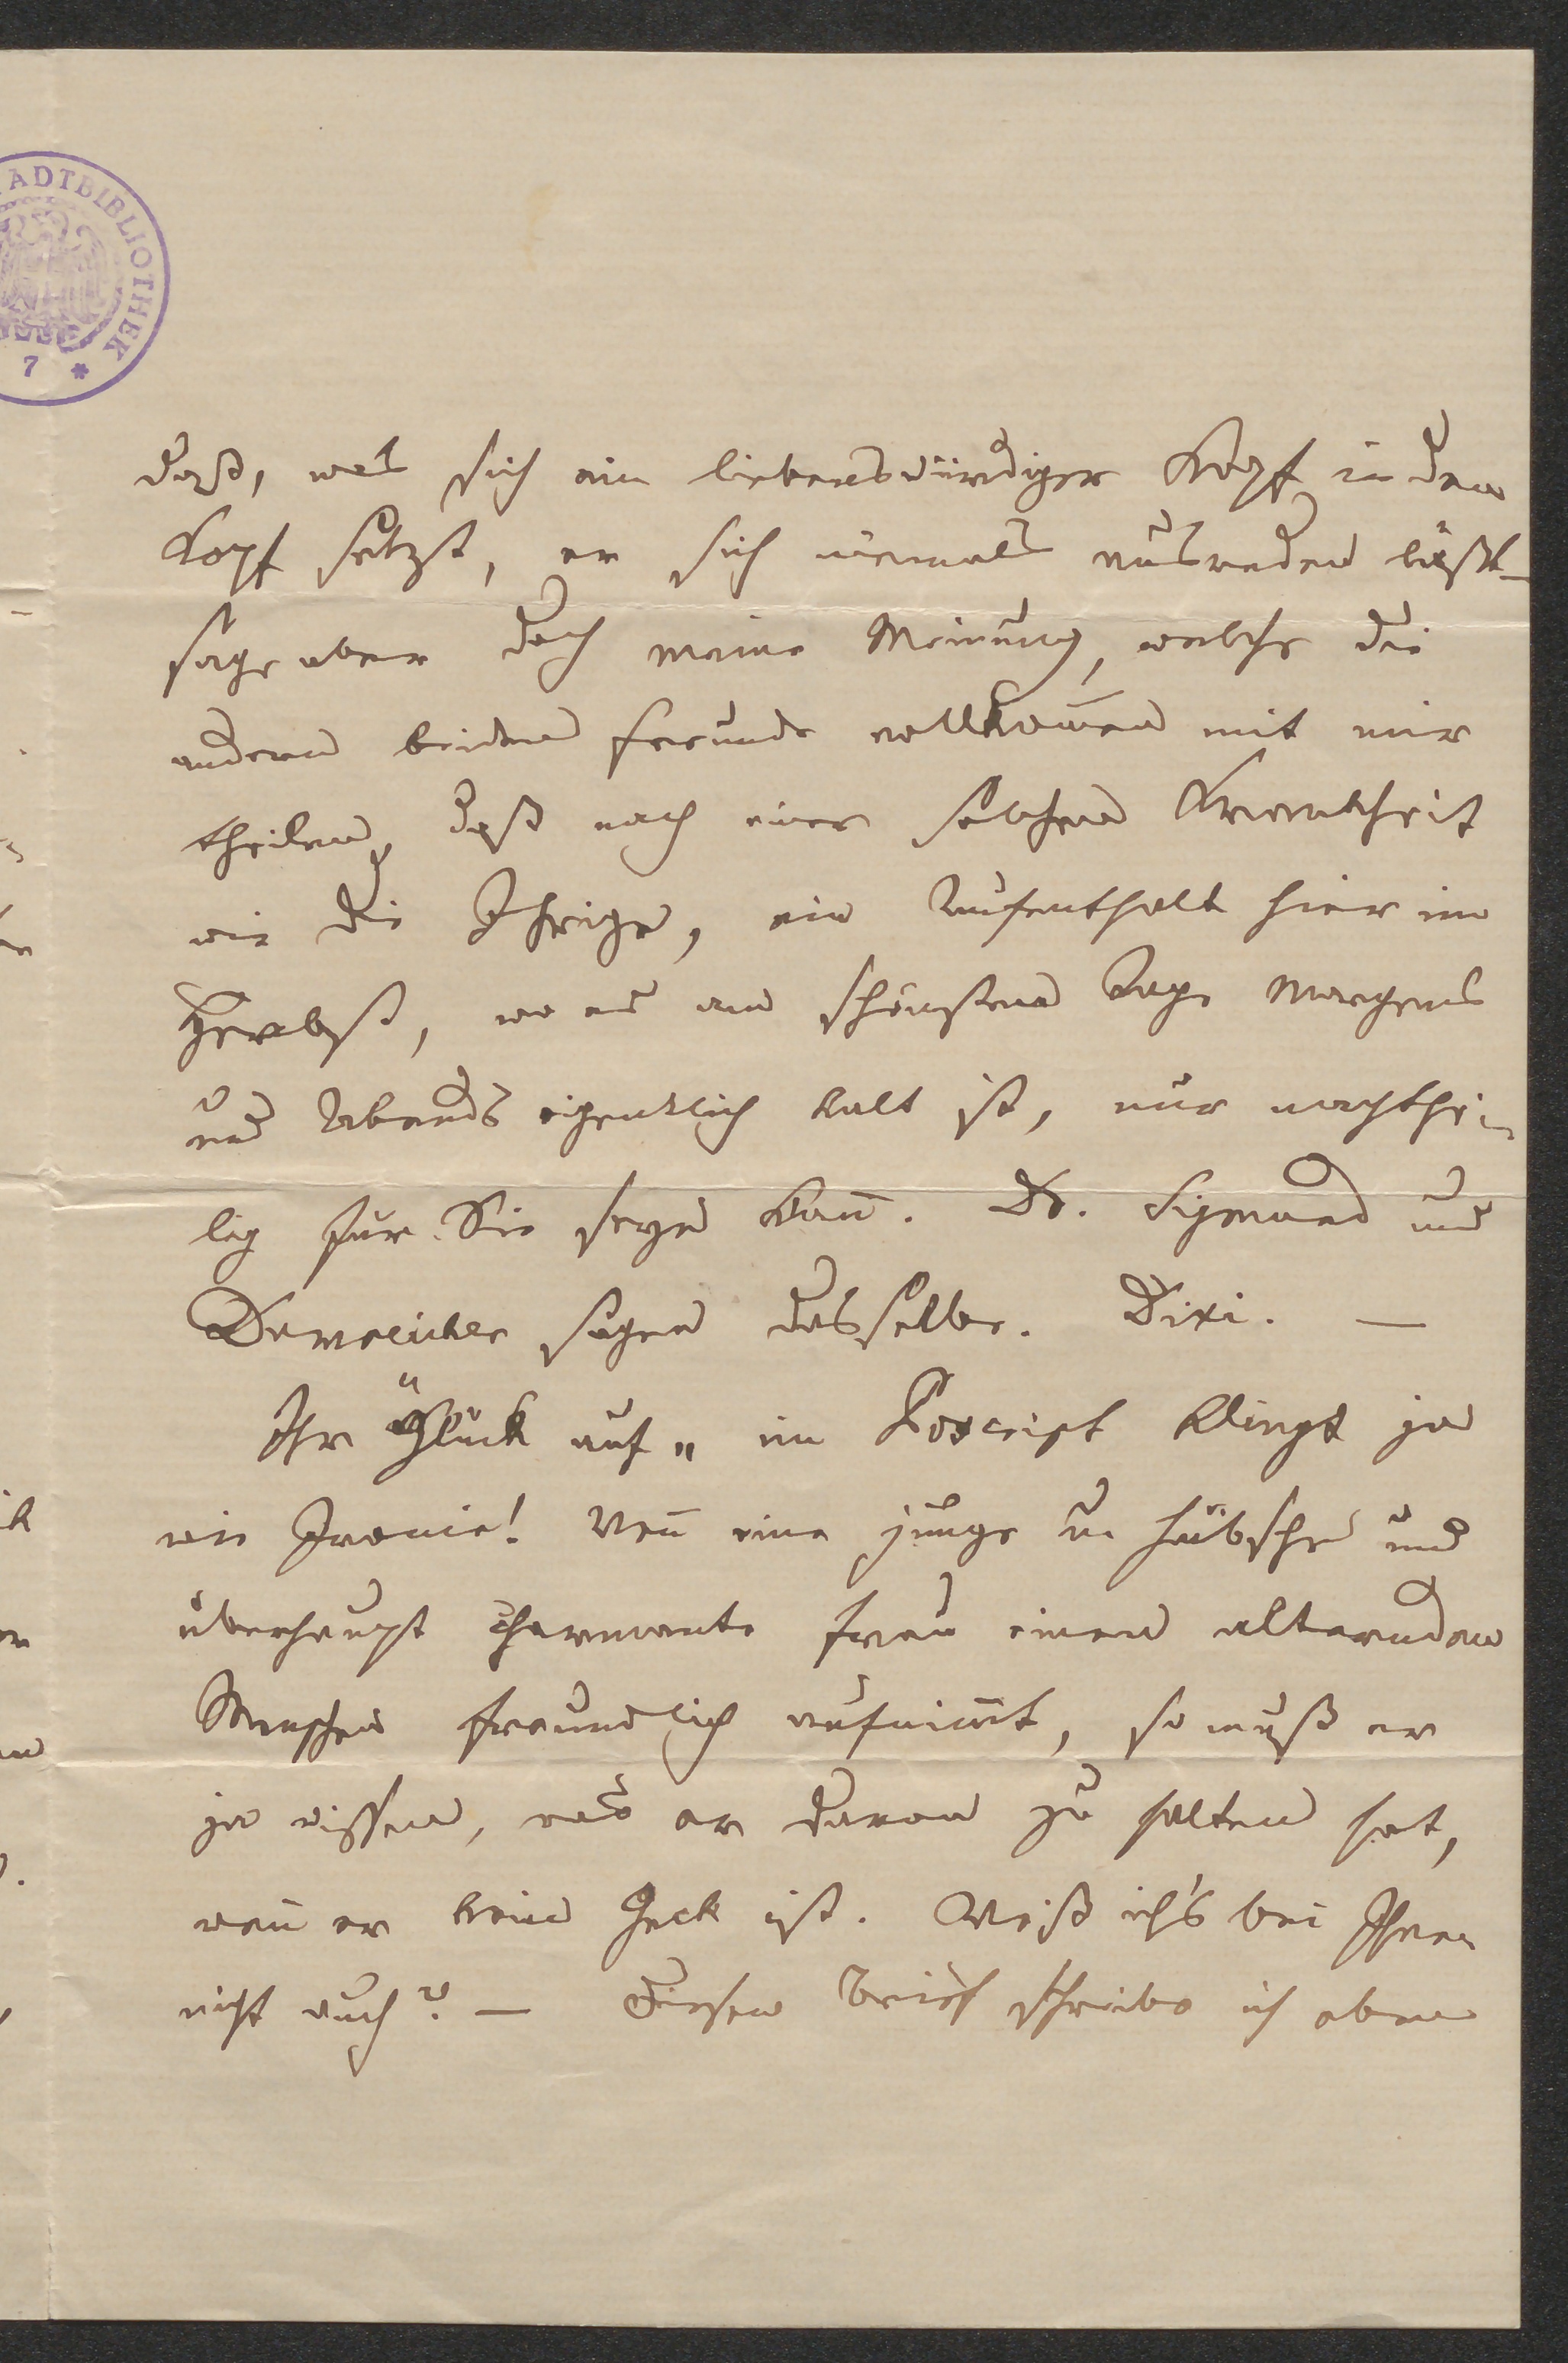 ADTBIBLIOTHEK
7 *
daß, was sich ein liebenswürdiger Kopf in den
Kopf setzt, er sich niemals ausreden läßt –
sage aber doch meine Meinung, welche die
andern beiden Freunde vollkom̄en mit mir
theilen, daß nach einer solchen Krankheit
wie die Ihrige, ein Aufenthalt hier im
Herbst, wo es am schönsten Tage Morgens
und Abends eigentlich kalt ist, nur nachthei-
lig für Sie seyn kan̄. Dr. Sigmund und
sagen dasselbe. Dixi. —
Ihr "Glück auf" im Poscript klingt ja
wie Ironie! Wen̄ eine junge u. hübsche und
überhaupt charmante Frau einen alternden
Menschen freundlich aufnim̄t, so muß er
ja wissen, was er davon zu halten hat,
wen̄ er kein Geck ist. Weiß ich's bei Ihnen
nicht auch? — Diesen Brief schreibe ich eben